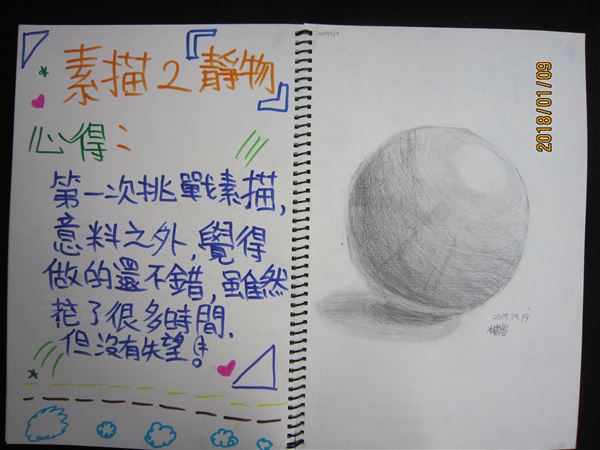 素描2『靜物』
心得：
第一次挑戰素描，
意料之外，覺得
做的還不錯，雖然
花了很多時間，
但沒有失望！
2018/01/09
2017.09.19